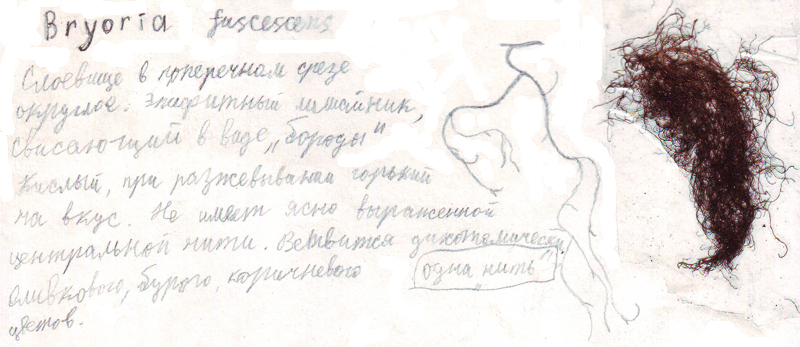 Bryoria fuscescens
Слоевище в поперечном срезе
округлое. Эпифитный лишайник,
свисающий в виде „бороды"
Кислый, при разжевывании горький
на вкус. Не имеет ясно выраженной
центральной нити. Ветвится дихотомически
оливкового, бурого, коричневого
цветов.
одна „нить"